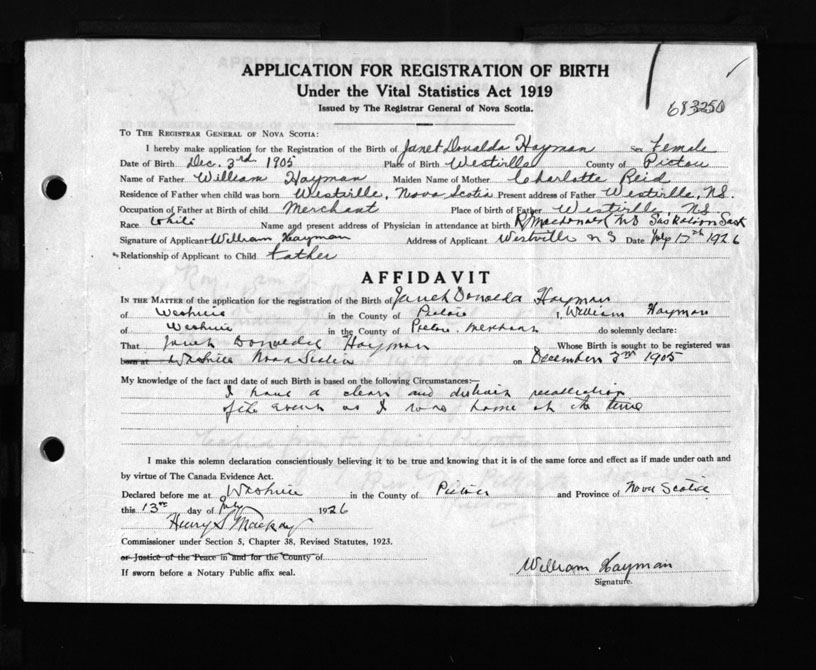 APPLICATION FOR REGISTRATION OF BIRTH
Under the Vital Statistics Act 1919
Issued by The Registrar General of Nova Scotia.
683250
To The Registrar General of Nova Scotia:
I hereby make application for the Registration of the Birth of Janet Donalda Hayman Sex Female
Date of Birth Dec. 3rd 1905 Place of Birth Westville County of Pictou
Name of Father William Hayman Maiden Name of Mother Charlotte Reid
Residence of Father when child was born Westville, Nova Scotia Present address of Father Westville, N.S.
Occupation of Father at Birth of child Merchant Place of birth of Father Westville, N.S.
Race White Name and present address of Physician in attendance at birth R Macdonald MD Saskatoon Sask
Signature of Applicant William Hayman Address of Applicant Westville N S Date July 17th 1926
Relationship of Applicant to Child Father
AFFIDAVIT
In the Matter of the application for the registration of the Birth of Janet Donalda Hayman
of Westville in the County of Pictou I, William Hayman
of Westville in the County of Pictou Merchant do solemnly declare:
That Janet Donalda Hayman Whose Birth is sought to be registered was
born at Westville Nova Scotia on December 3rd 1905
My knowledge of the fact and date of such Birth is based on the following Circumstances:—
I have a clear and distinct recollection
of the event as I was home at the time
I make this solemn declaration conscientiously believing it to be true and knowing that it is of the same force and effect as if made under oath and
by virtue of The Canada Evidence Act.
Declared before me at Westville in the County of Pictou and Province of Nova Scotia
this 13th day of July 1926
Henry S Mackay
Commissioner under Section 5, Chapter 38, Revised Statutes, 1923.
or Justice of the Peace in and for the County of
If sworn before a Notary Public affix seal.
William Hayman
Signature.